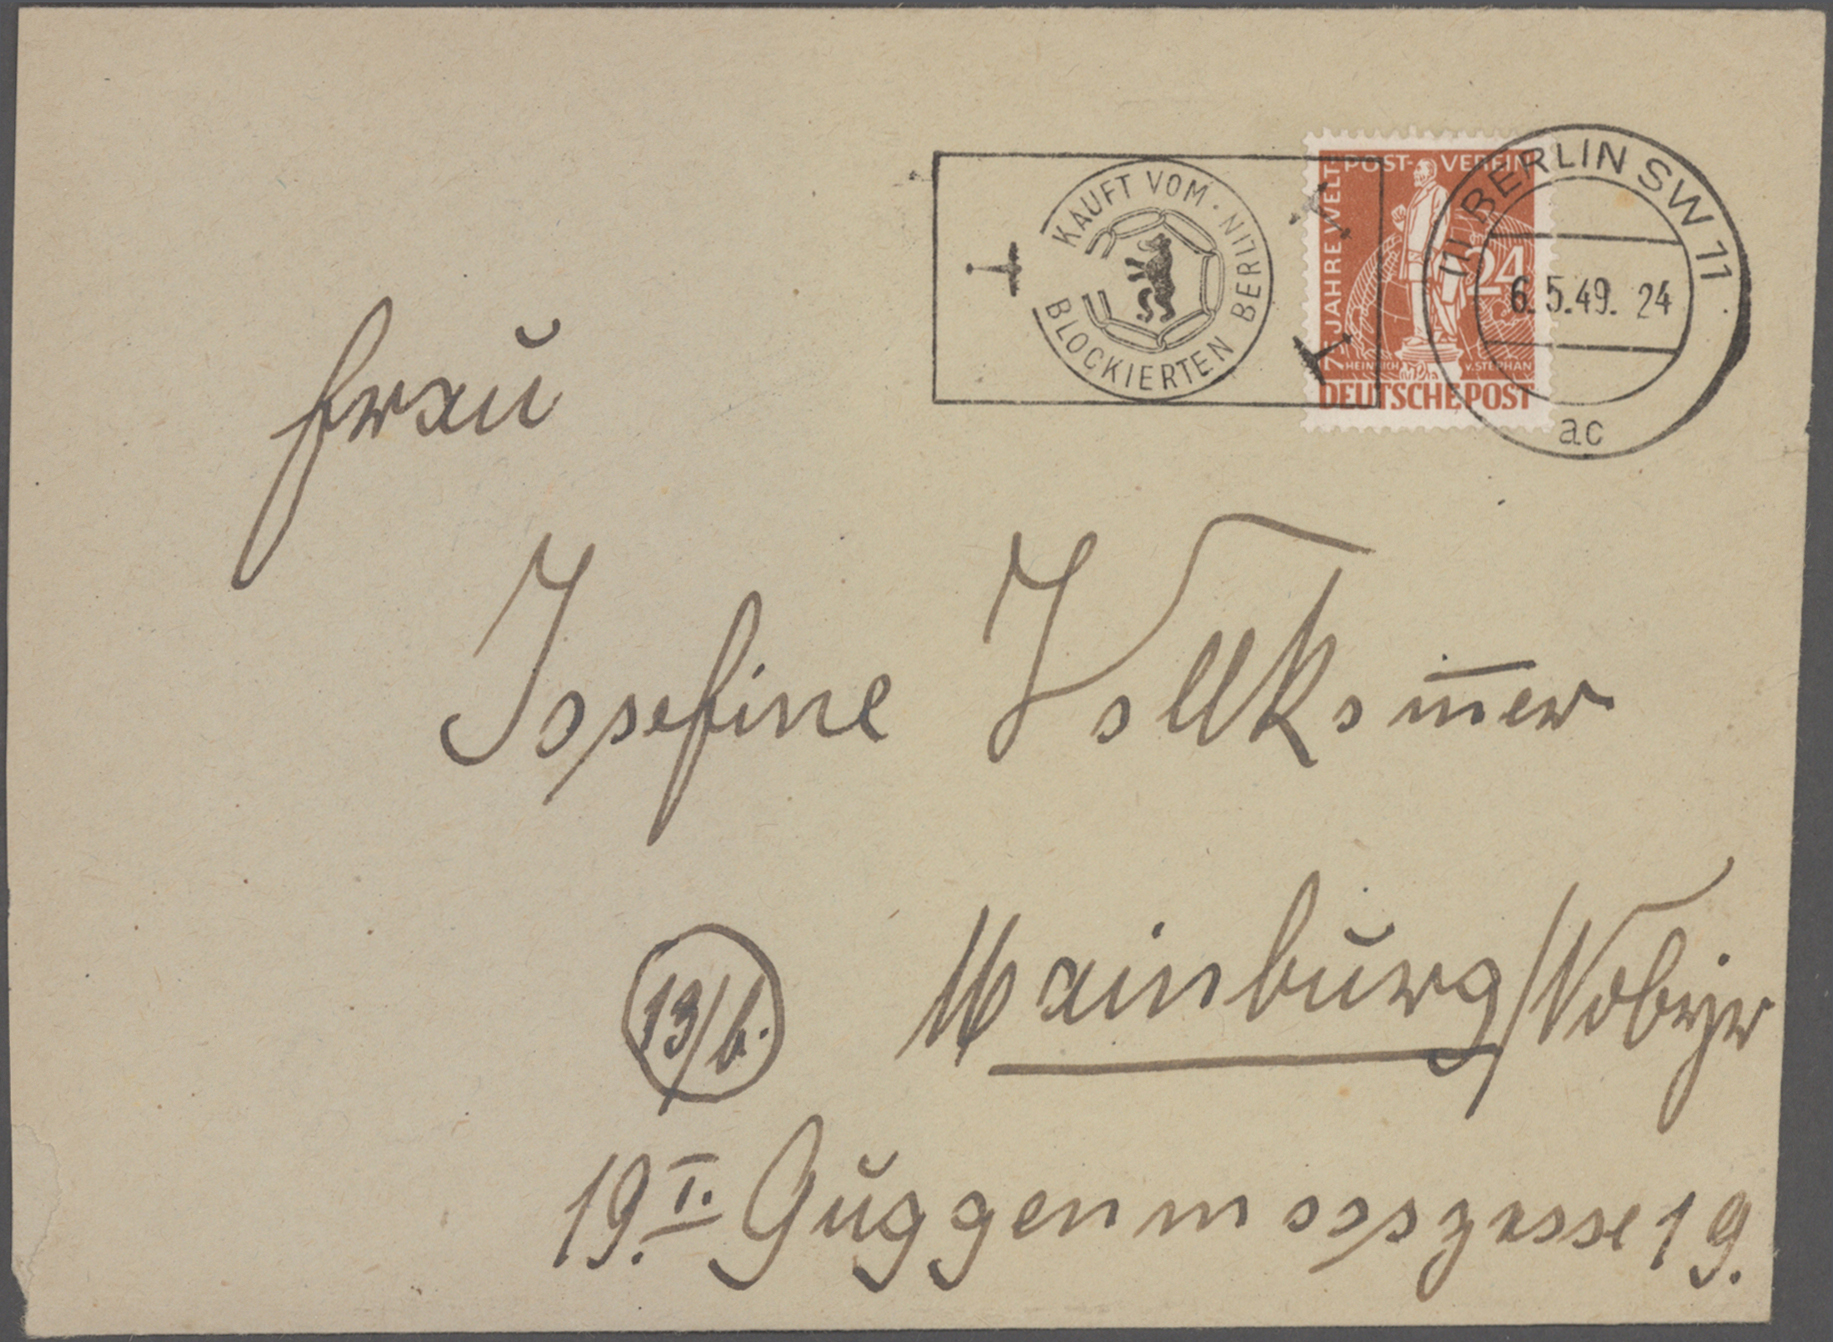 KAUFT VOM · BLOCKIERTEN BERLIN
75 JAHRE WELT-POST-VEREIN
24
HEINRICH V. STEPHAN
DEUTSCHE POST
BERLIN SW 11
6.5.49. 24
ac
Frau
Josefine Vollkom̅er
13/b.
Mainburg/Ndbyr
19.I. Guggenmoosgasse 19.